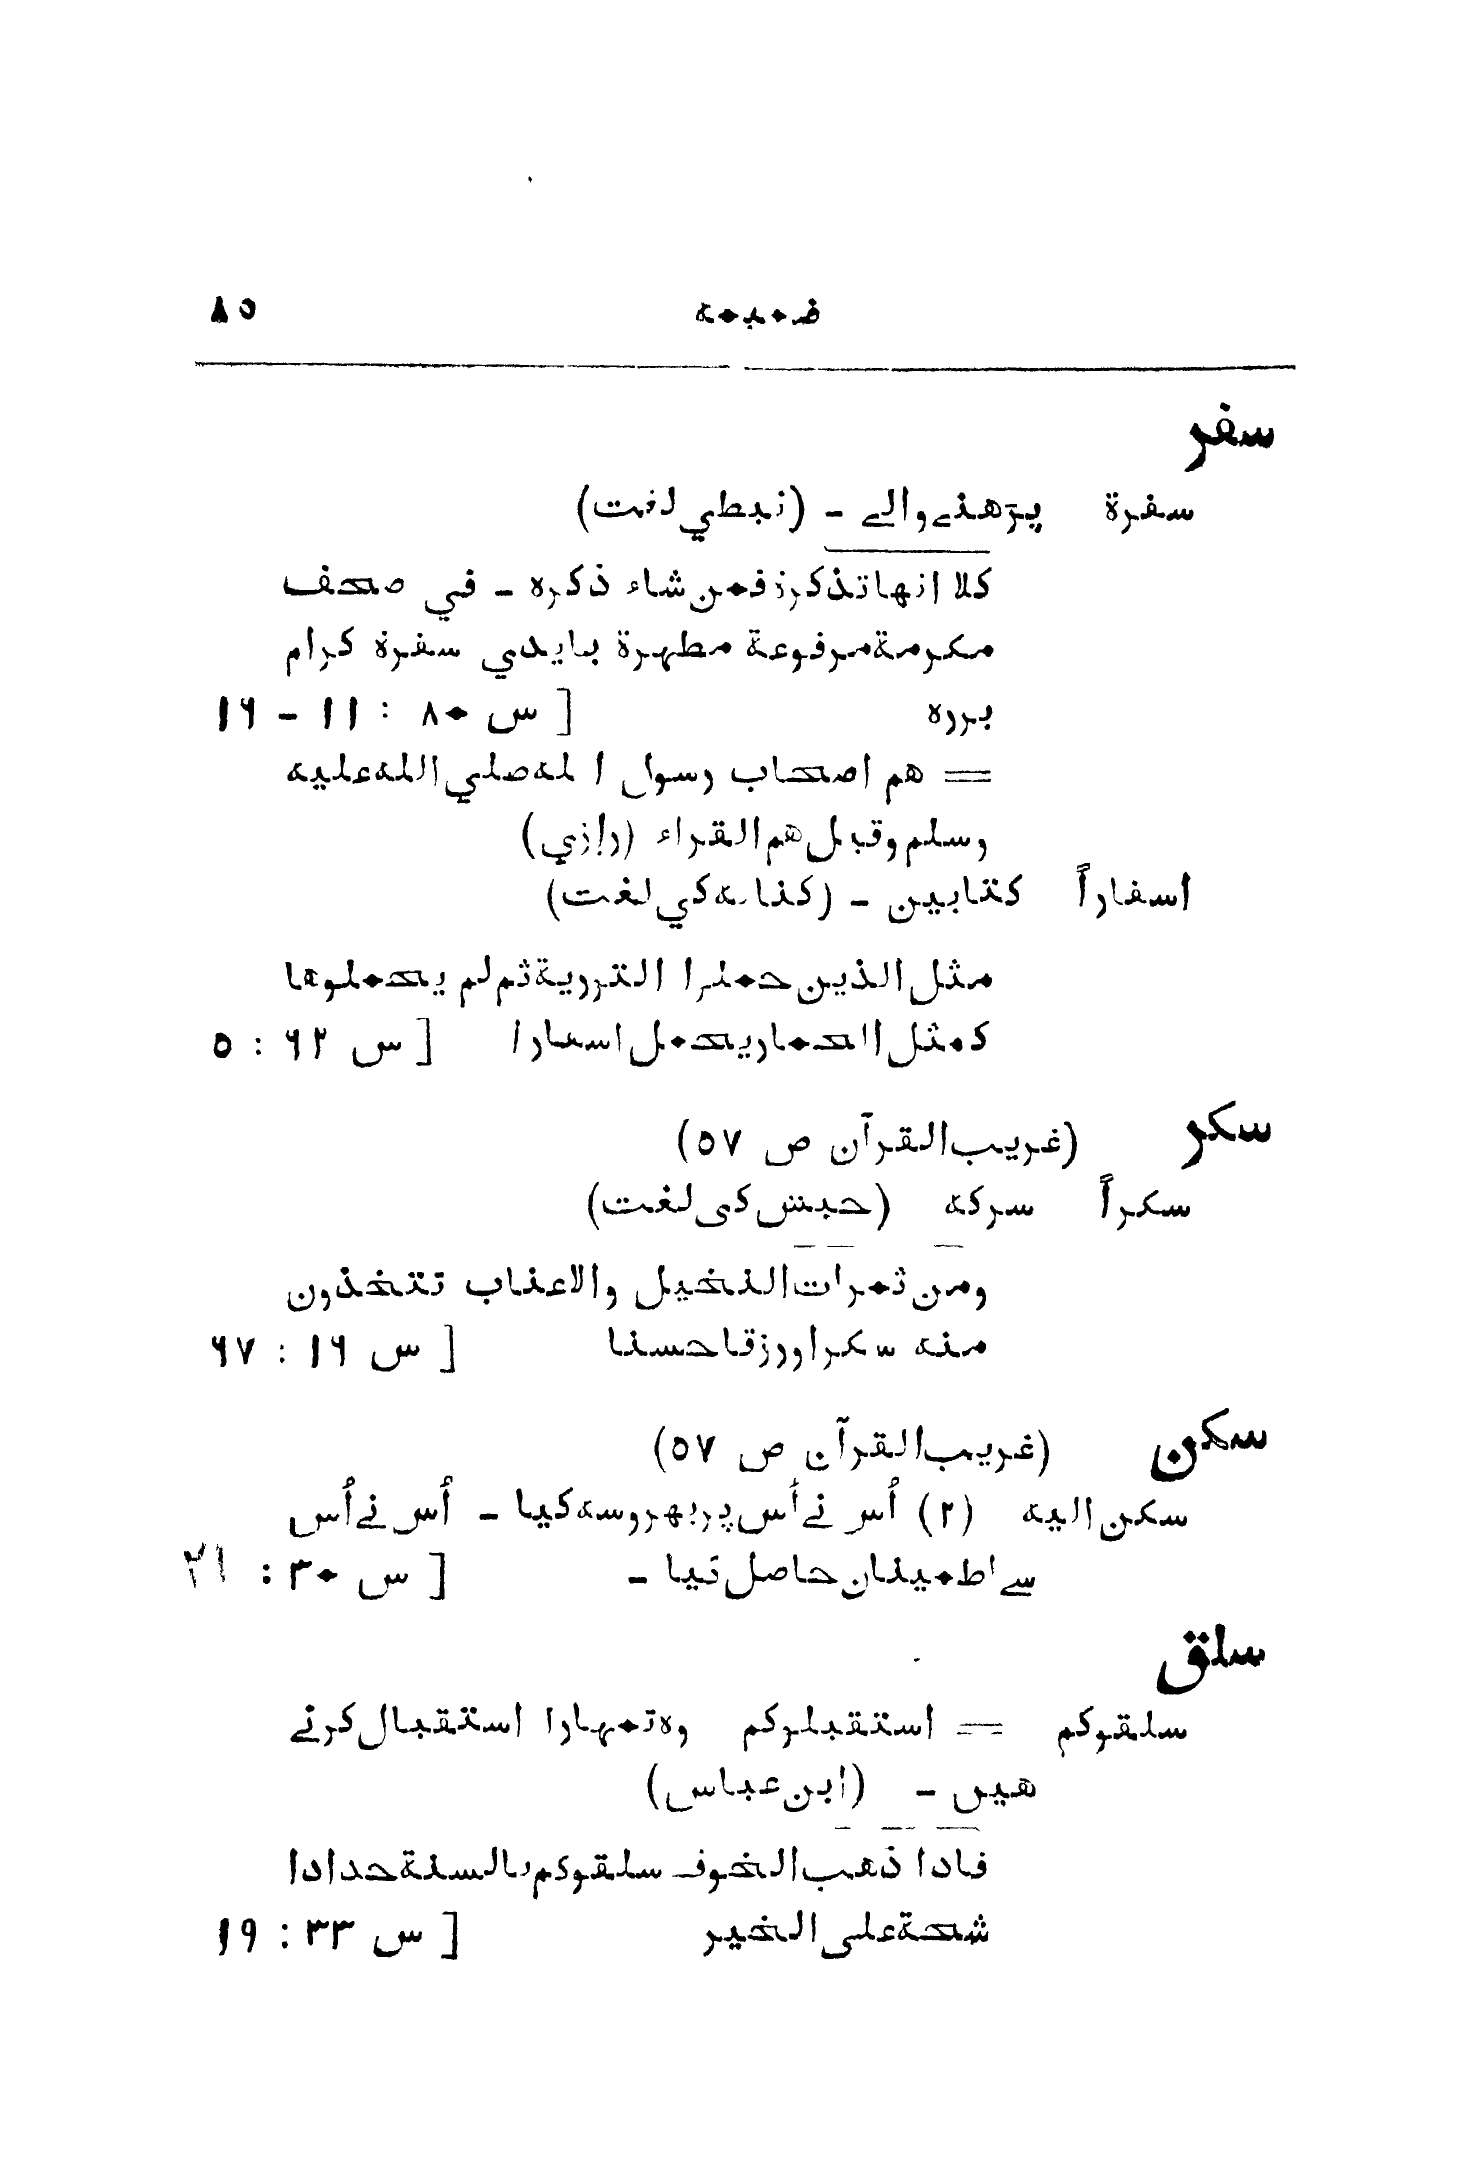 ضمیمه ۸۵
سفر
سفرة پڑھنے والے - (نبطي لغت)
كلا انها تذكرة فمن شاء ذكره - في صحف
مكرمة مرفوعة مطهرة بايدي سفرة كرام
برره [ س ۸۰ : ۱۱ - ۱۶
= هم اصحاب رسول الله صلي الله عليه
وسلم وقيل هم القراء (رازي)
اسفاراً كتابين - (كنانه كي لغت)
مثل الذين حملوا التورية ثم لم يحملوها
كمثل الحمار يحمل اسفارا [ س ۶۲ : ۵
سكر (غريب القرآن ص ۵۷)
سكراً سركه (حبش كى لغت)
ومن ثمرات النخيل والاعناب تتخذون
منه سكرا ورزقا حسنا [ س ۱۶ : ۶۷
سكن (غريب القرآن ص ۵۷)
سكن اليه (۲) اُس نے اُس پر بهروسه كيا - اُس نے اُس
سے اطمينان حاصل كيا - [ س ۳۰ : ۲۱
سلق
سلقوكم = استقبلوكم وه تمهارا استقبال كرتے
هيں - (ابن عباس)
فاذا ذهب الخوف سلقوكم بالسنة حدادا
شحة على الخير [ س ۳۳ : ۱۹